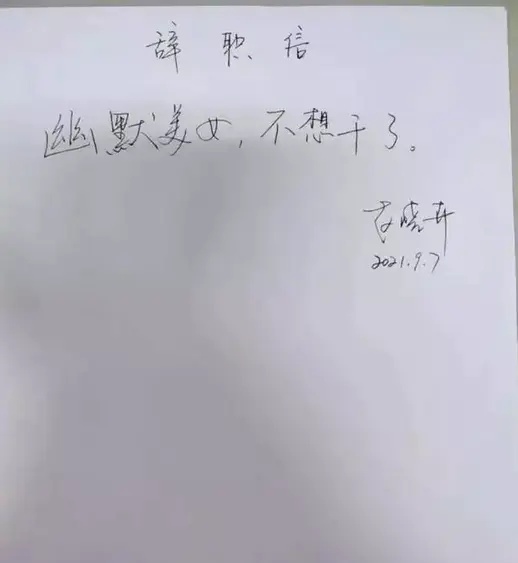 辞职信
幽默美女，不想干了。
2021.9.7